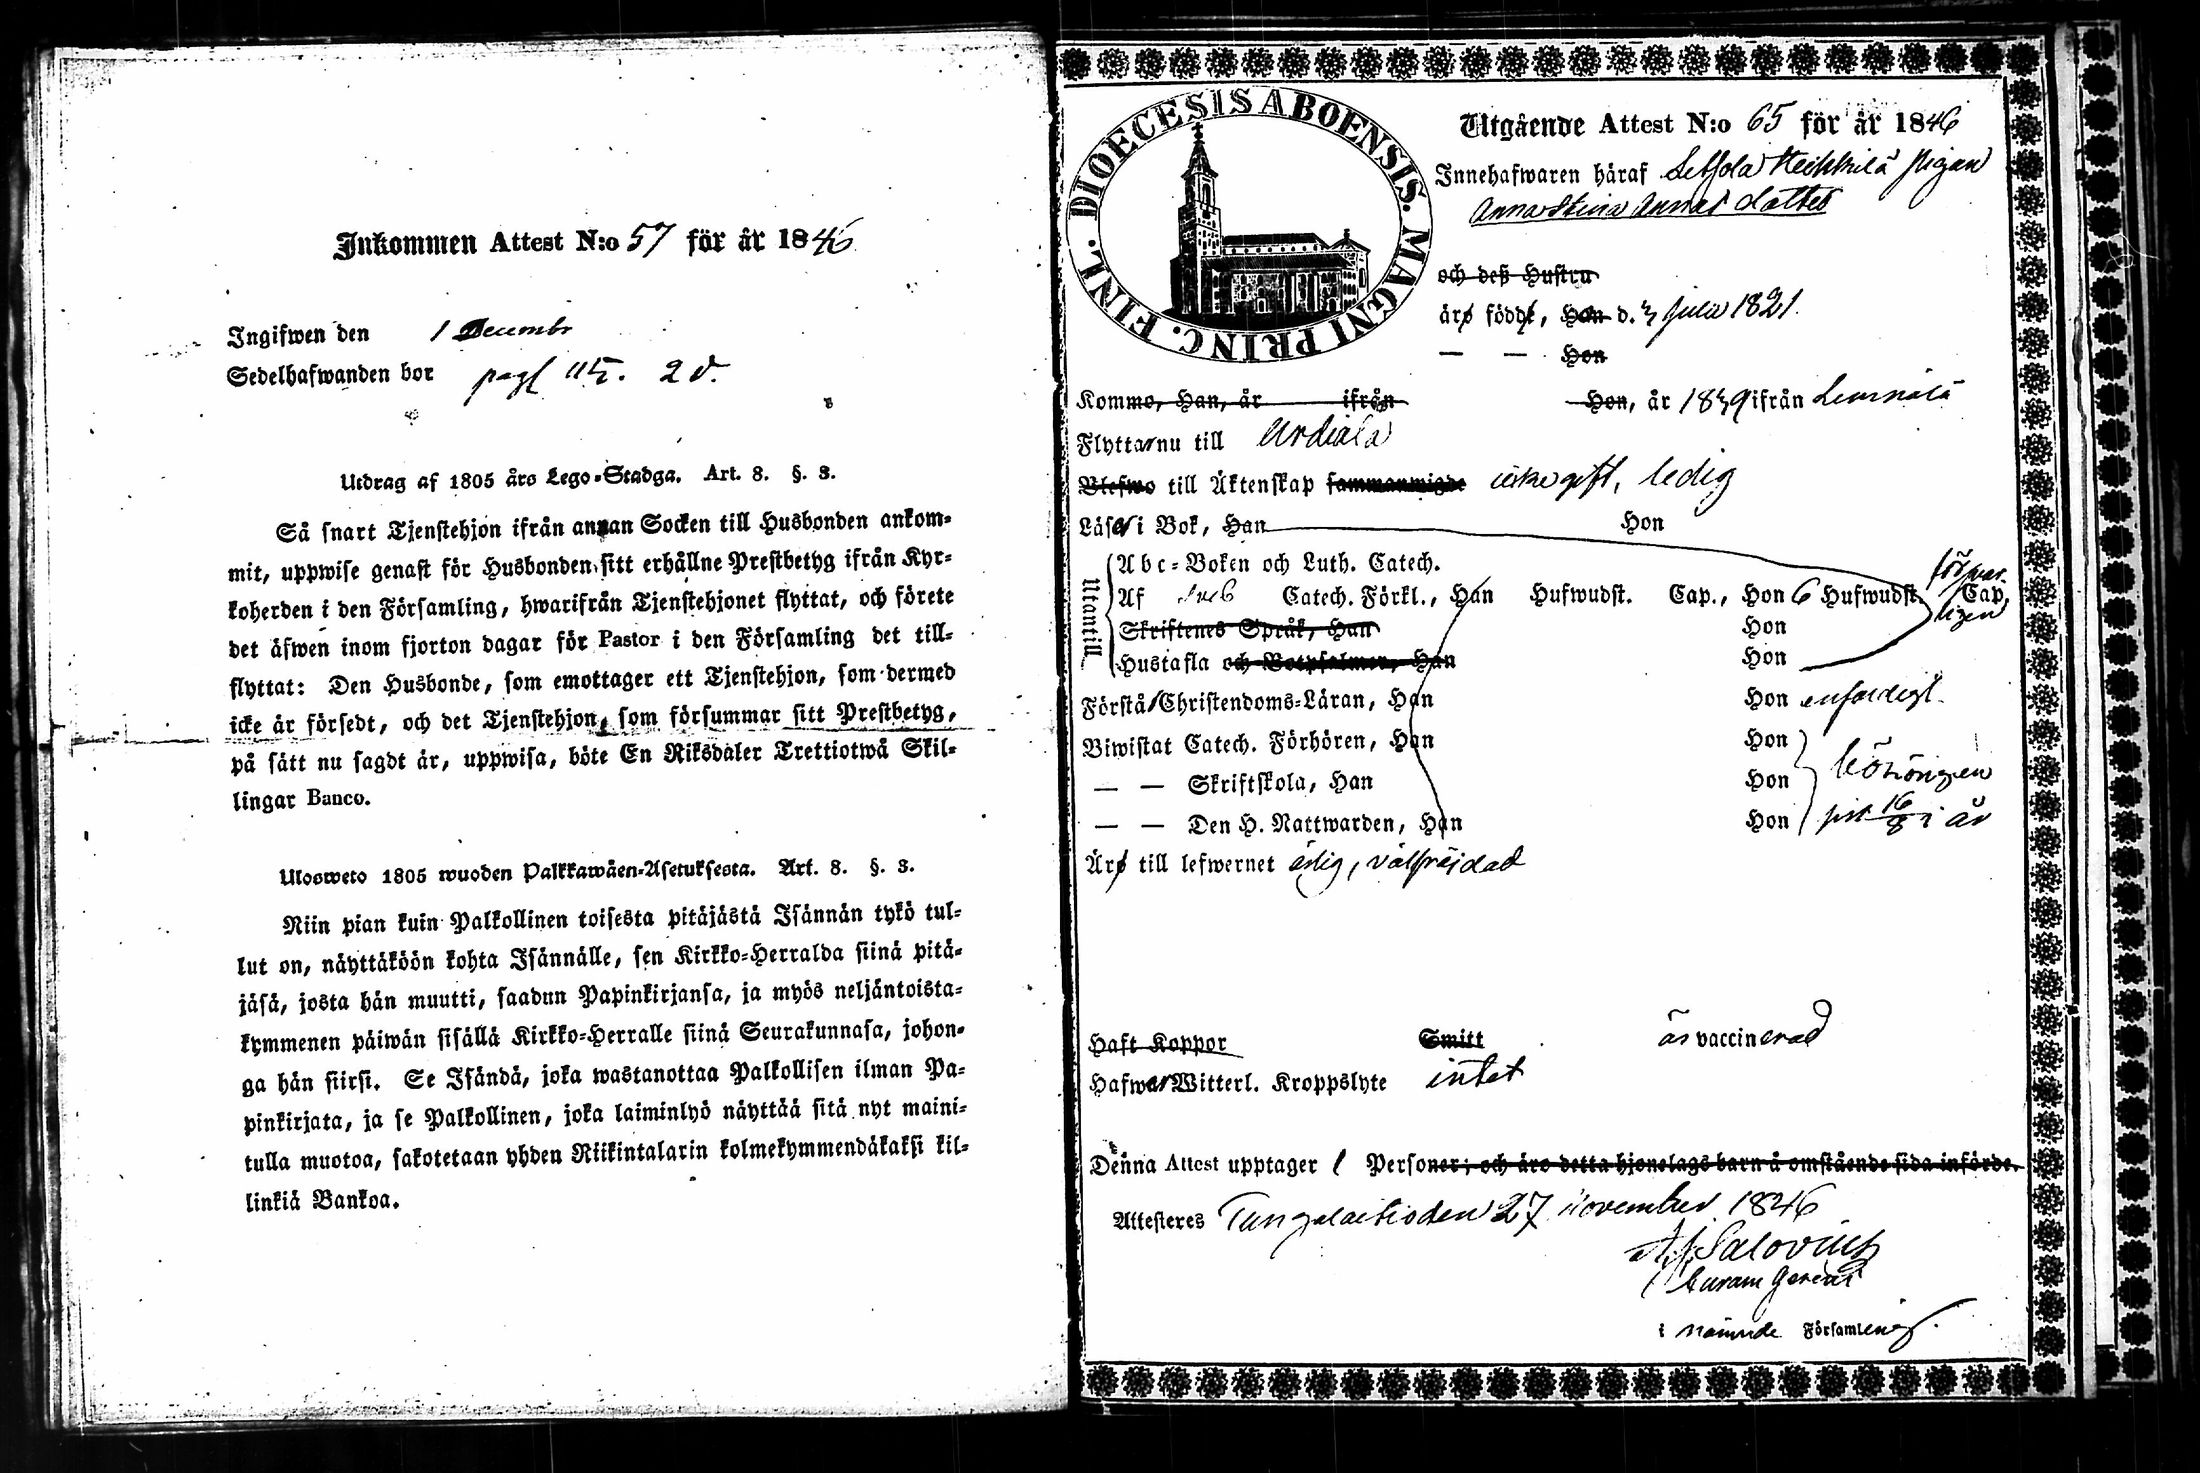 Inkommen Attest N:o 57 för år 1846
Ingifwen den 1 Decembr
Sedelhafwanden bor pag 115. 2 d.
Utdrag af 1805 års Lego-Stadga. Art. 8. §. 3.
Så snart Tjenstehjon ifrån annan Socken till Husbonden ankom-
mit, uppwise genast för Husbonden sitt erhållne Prestbetyg ifrån Kyr-
koherden i den Församling, hwarifrån Tjenstehjonet flyttat, och förete
det äfwen inom fjorton dagar för Pastor i den Församling det till-
flyttat: Den Husbonde, som emottager ett Tjenstehjon, som dermed
icke är försedt, och det Tjenstehjon, som försummar sitt Prestbetyg,
på sätt nu sagdt är, uppwisa, böte En Riksdaler Trettiotwå Skil-
lingar Banco.
Ulosweto 1805 wuoden Palkkawäen-Asetuksesta. Art. 8. §. 3.
Niin pian kuin Palkollinen toisesta pitäjästä Isännän tykö tul-
lut on, näyttäköön kohta Isännälle, sen Kirkko-Herralda siinä pitä-
jäsä, josta hän muutti, saadun Papinkirjansa, ja myös neljäntoista-
kymmenen päiwän sisällä Kirkko-Herralle siinä Seurakunnasa, johon-
ga hän siirsi. Se Isändä, joka wastanottaa Palkollisen ilman Pa-
pinkirjata, ja se Palkollinen, joka laiminlyö näyttää sitä nyt maini-
tulla muotoa, sakotetaan yhden Riikintalarin kolmekymmendäkaksi kil-
linkiä Bankoa.
DIOECESIS ABOENSIS. MAGNI PRINC. FINL.
Utgående Attest N:o 65 för år 1846
Innehafwaren häraf Heikkilä pigan
Anna Stina dotter
och deß Hustru
äro född, Han d. 3 Julii 1821.
— — Hon
Kommo, Han, år ifrån Hon, år 1839 ifrån Lemmälä
Flyttar nu till Urdiala
Blefwo till Äktenskap sammanwigde icke gift, ledig
Läser i Bok, Han Hon
Utantill
Abc-Boken och Luth. Catech.
Af Sveb Catech. Förkl., Han Hufwudst. Cap., Hon 6 Hufwudst. Cap.
försvar-
ligen
Skriftenes Språk, Han Hon
Hustafla och Botpsalmer, Han Hon
Förstå Christendoms-Läran, Han Hon enfaldigt.
Biwistat Catech. Förhören, Han Hon
— — Skriftskola, Han Hon behörigen
— — Den H. Nattwarden, Han Hon sist 16/8 i år
Äro till lefwernet ärlig, välfräjdad
Haft Koppor Smitt är vaccinerad
Hafwer Witterl. Kroppslyte intet
Denna Attest upptager 1 Personer; och äro detta hjonelags barn å omstående sida införde.
Attesteres Tungelaitio den 27 November 1846
A. J. Salovius
Curam Gerens
i nämnde Församling.